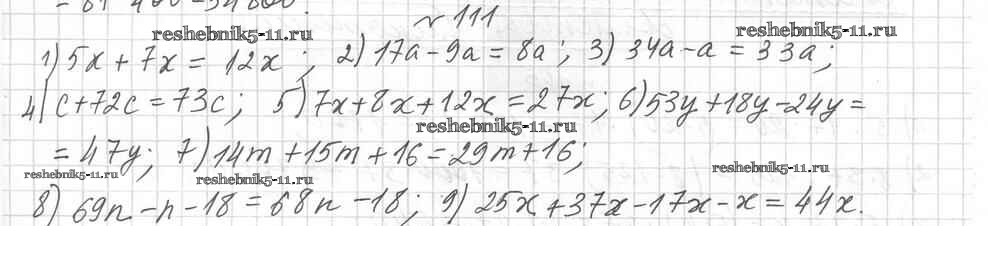 = 61 400 - 54 800.
№ 111
reshebnik5-11.ru reshebnik5-11.ru
1) 5x + 7x = 12x; 2) 17a - 9a = 8a; 3) 34a - a = 33a;
4) c + 72c = 73c; 5) 7x + 8x + 12x = 27x; 6) 53y + 18y - 24y =
reshebnik5-11.ru
= 47y; 7) 14m + 15m + 16 = 29m + 16;
reshebnik5-11.ru reshebnik5-11.ru reshebnik5-11.ru
8) 69n - n - 18 = 68n - 18; 9) 25x + 37x - 17x - x = 44x.